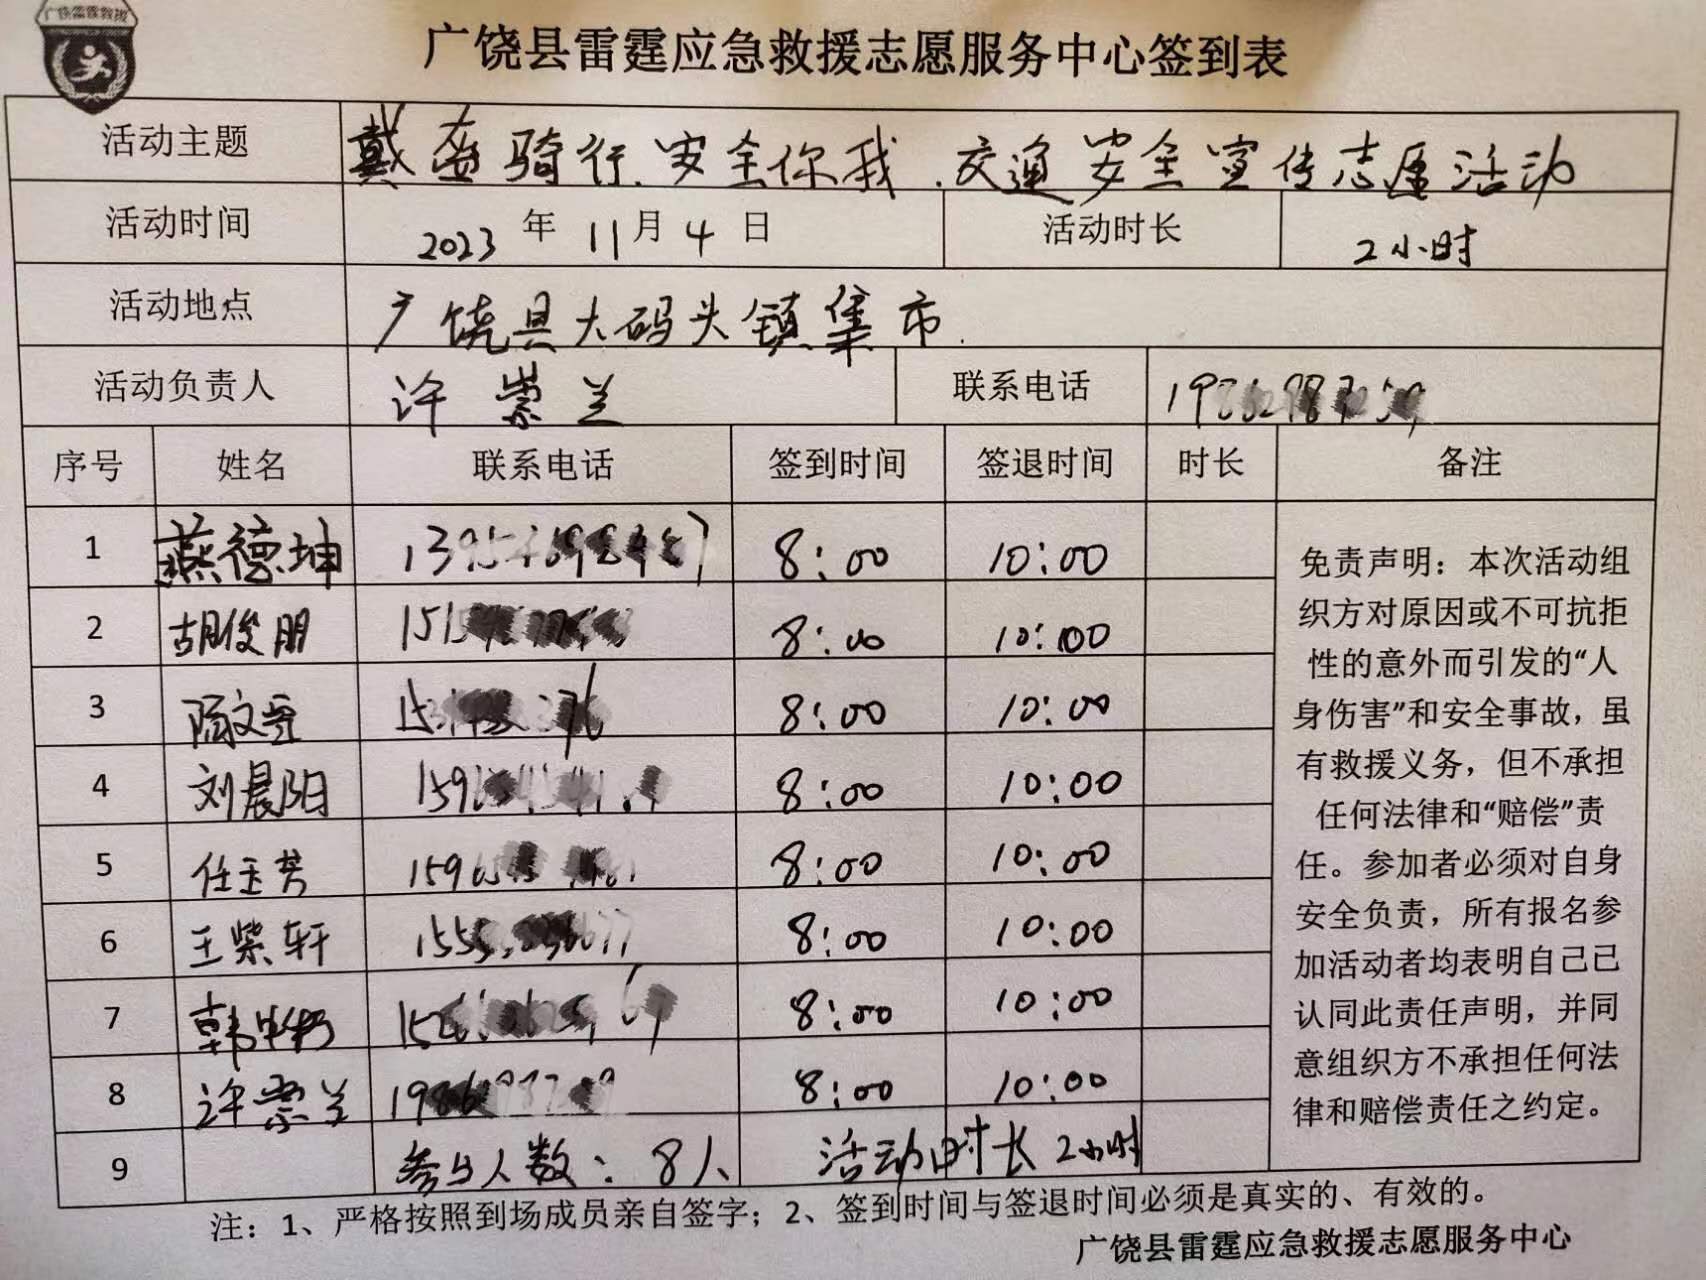 广饶雷霆救援
广饶县雷霆应急救援志愿服务中心签到表
活动主题 戴盔骑行.安全你我.交通安全宣传志愿活动
活动时间 2023年11月4日 活动时长 2小时
活动地点 广饶县大码头镇集市.
活动负责人 许崇兰 联系电话
序号 姓名 联系电话 签到时间 签退时间 时长 备注
1 燕德坤 8:00 10:00
2 胡俊朋 8:00 10:00
3 8:00 10:00
4 刘晨阳 8:00 10:00
5 任玉芳 8:00 10:00
6 王紫轩 8:00 10:00
7 8:00 10:00
8 许崇兰 8:00 10:00
9 参与人数：8人 活动时长2小时
免责声明：本次活动组
织方对原因或不可抗拒
性的意外而引发的“人
身伤害”和安全事故，虽
有救援义务，但不承担
任何法律和“赔偿”责
任。参加者必须对自身
安全负责，所有报名参
加活动者均表明自己已
认同此责任声明，并同
意组织方不承担任何法
律和赔偿责任之约定。
注：1、严格按照到场成员亲自签字；2、签到时间与签退时间必须是真实的、有效的。
广饶县雷霆应急救援志愿服务中心